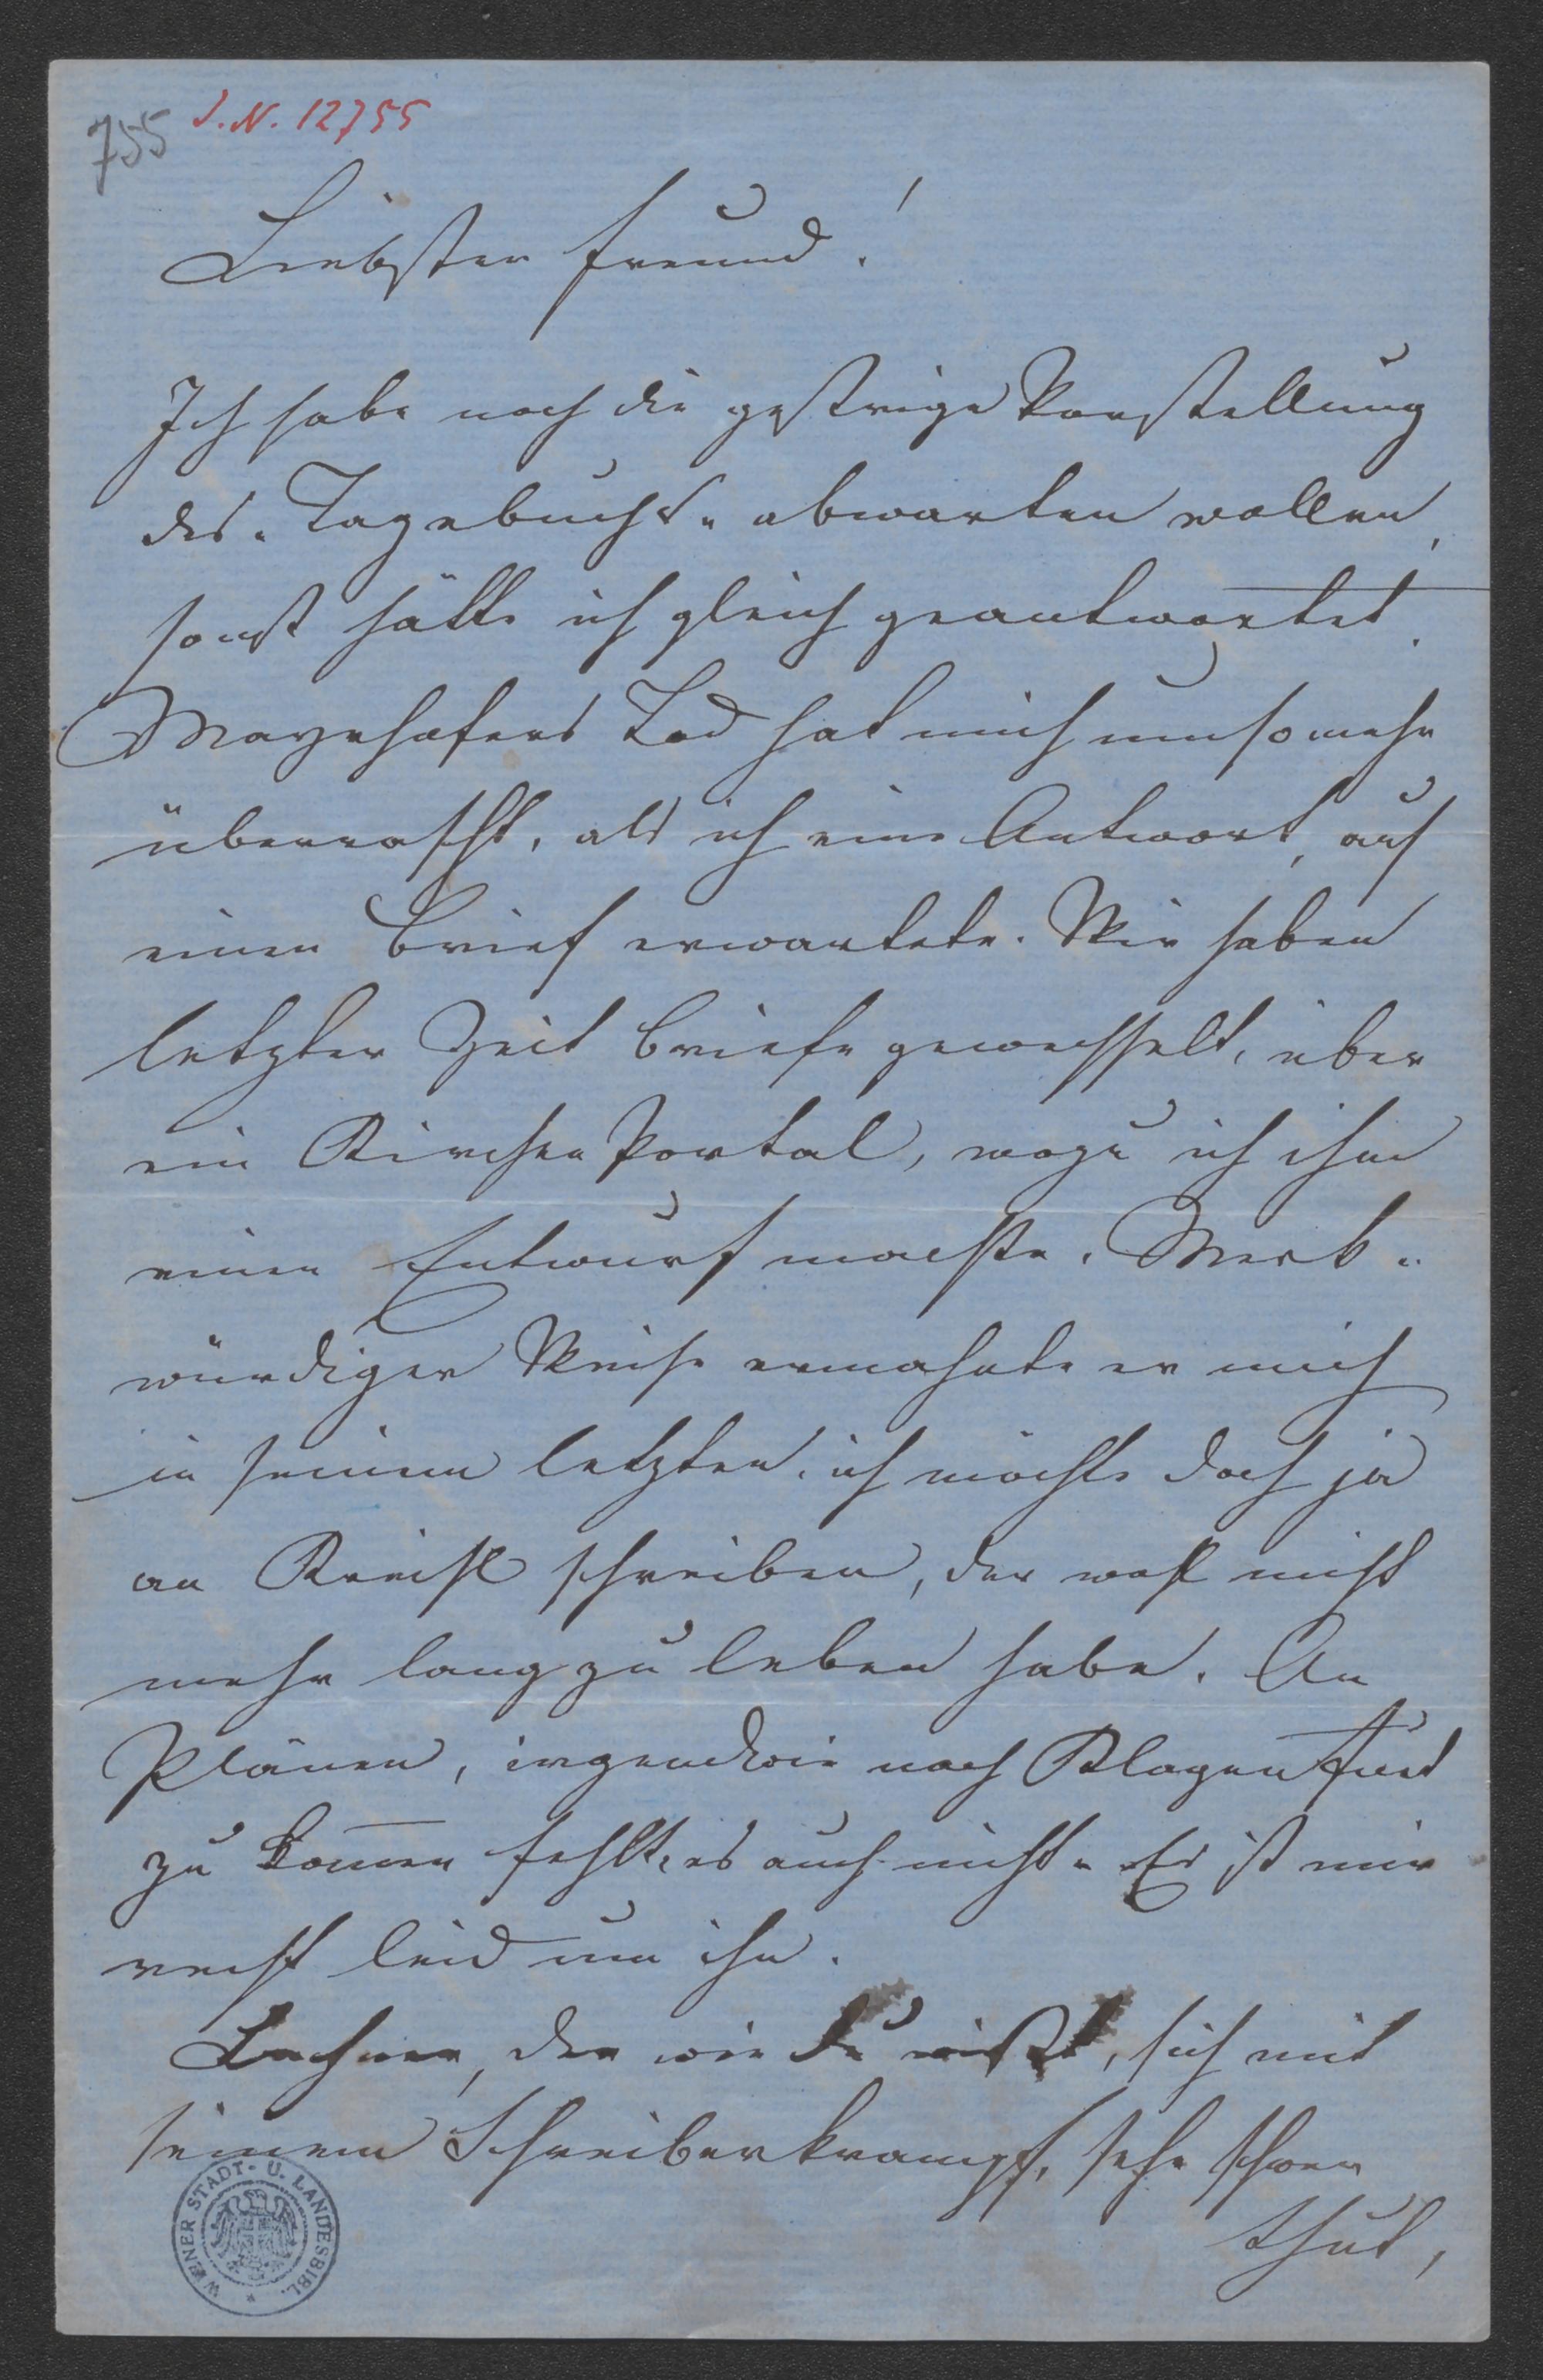 755 J.N. 12755
Liebster Freund!
Ich habe noch die gestrige Vorstellung
des „Tagebuchs" abwarten wollen,
sonst hätte ich gleich geantwortet.
Mayrhofers Tod hat mich um so mehr
überrascht, als ich eine Antwort, auf
einen Brief erwartete. Wir haben
letzter Zeit Briefe gewechselt, über
ein Kirchen Portal, wozu ich ihm
einen Entwurf machte. Merk-
würdiger Weise ermahnte er mich
in seinem letzten, ich möchte doch ja
an schreiben, der wohl nicht
mehr lang zu leben habe. An
Plänen, irgendwie nach Klagenfurt
zu kom̅en fehlte es auch nicht. Es ist mir
recht leid um ihn.
der wie Du weißt, sich mit
seinem Schreiberkrampf, sehr schwer
thut,
WIENER STADT- U. LANDESBIBL.